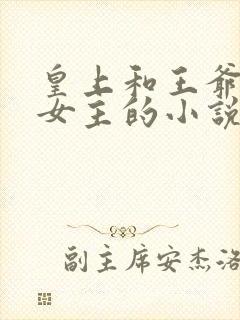 皇上和王爷
女主的小說
副主席安杰洛